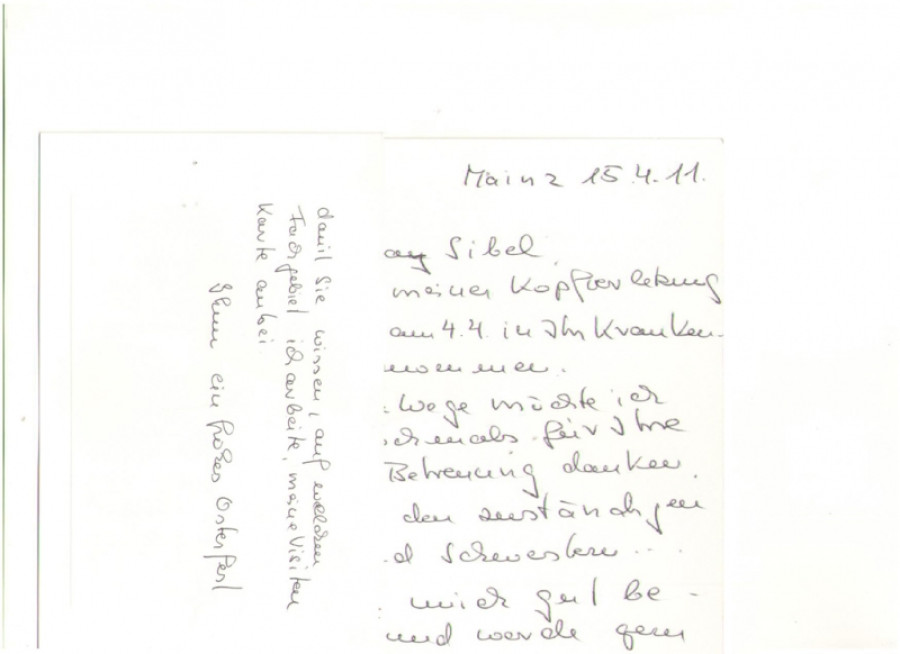 Mainz 15.4.11.
Sibel,
meiner Kopfverletzung
am 4.4. in Ihr Kranken-
nommen.
Wege möchte ich
chmals für Ihre
Betreuung danken
den zuständigen
d Schwestern...
mich gut be-
und werde gern
damit Sie wissen, auf welchem
Fachgebiet ich arbeite, meine Visiten
Karte anbei.
Ihnen ein frohes Osterfest